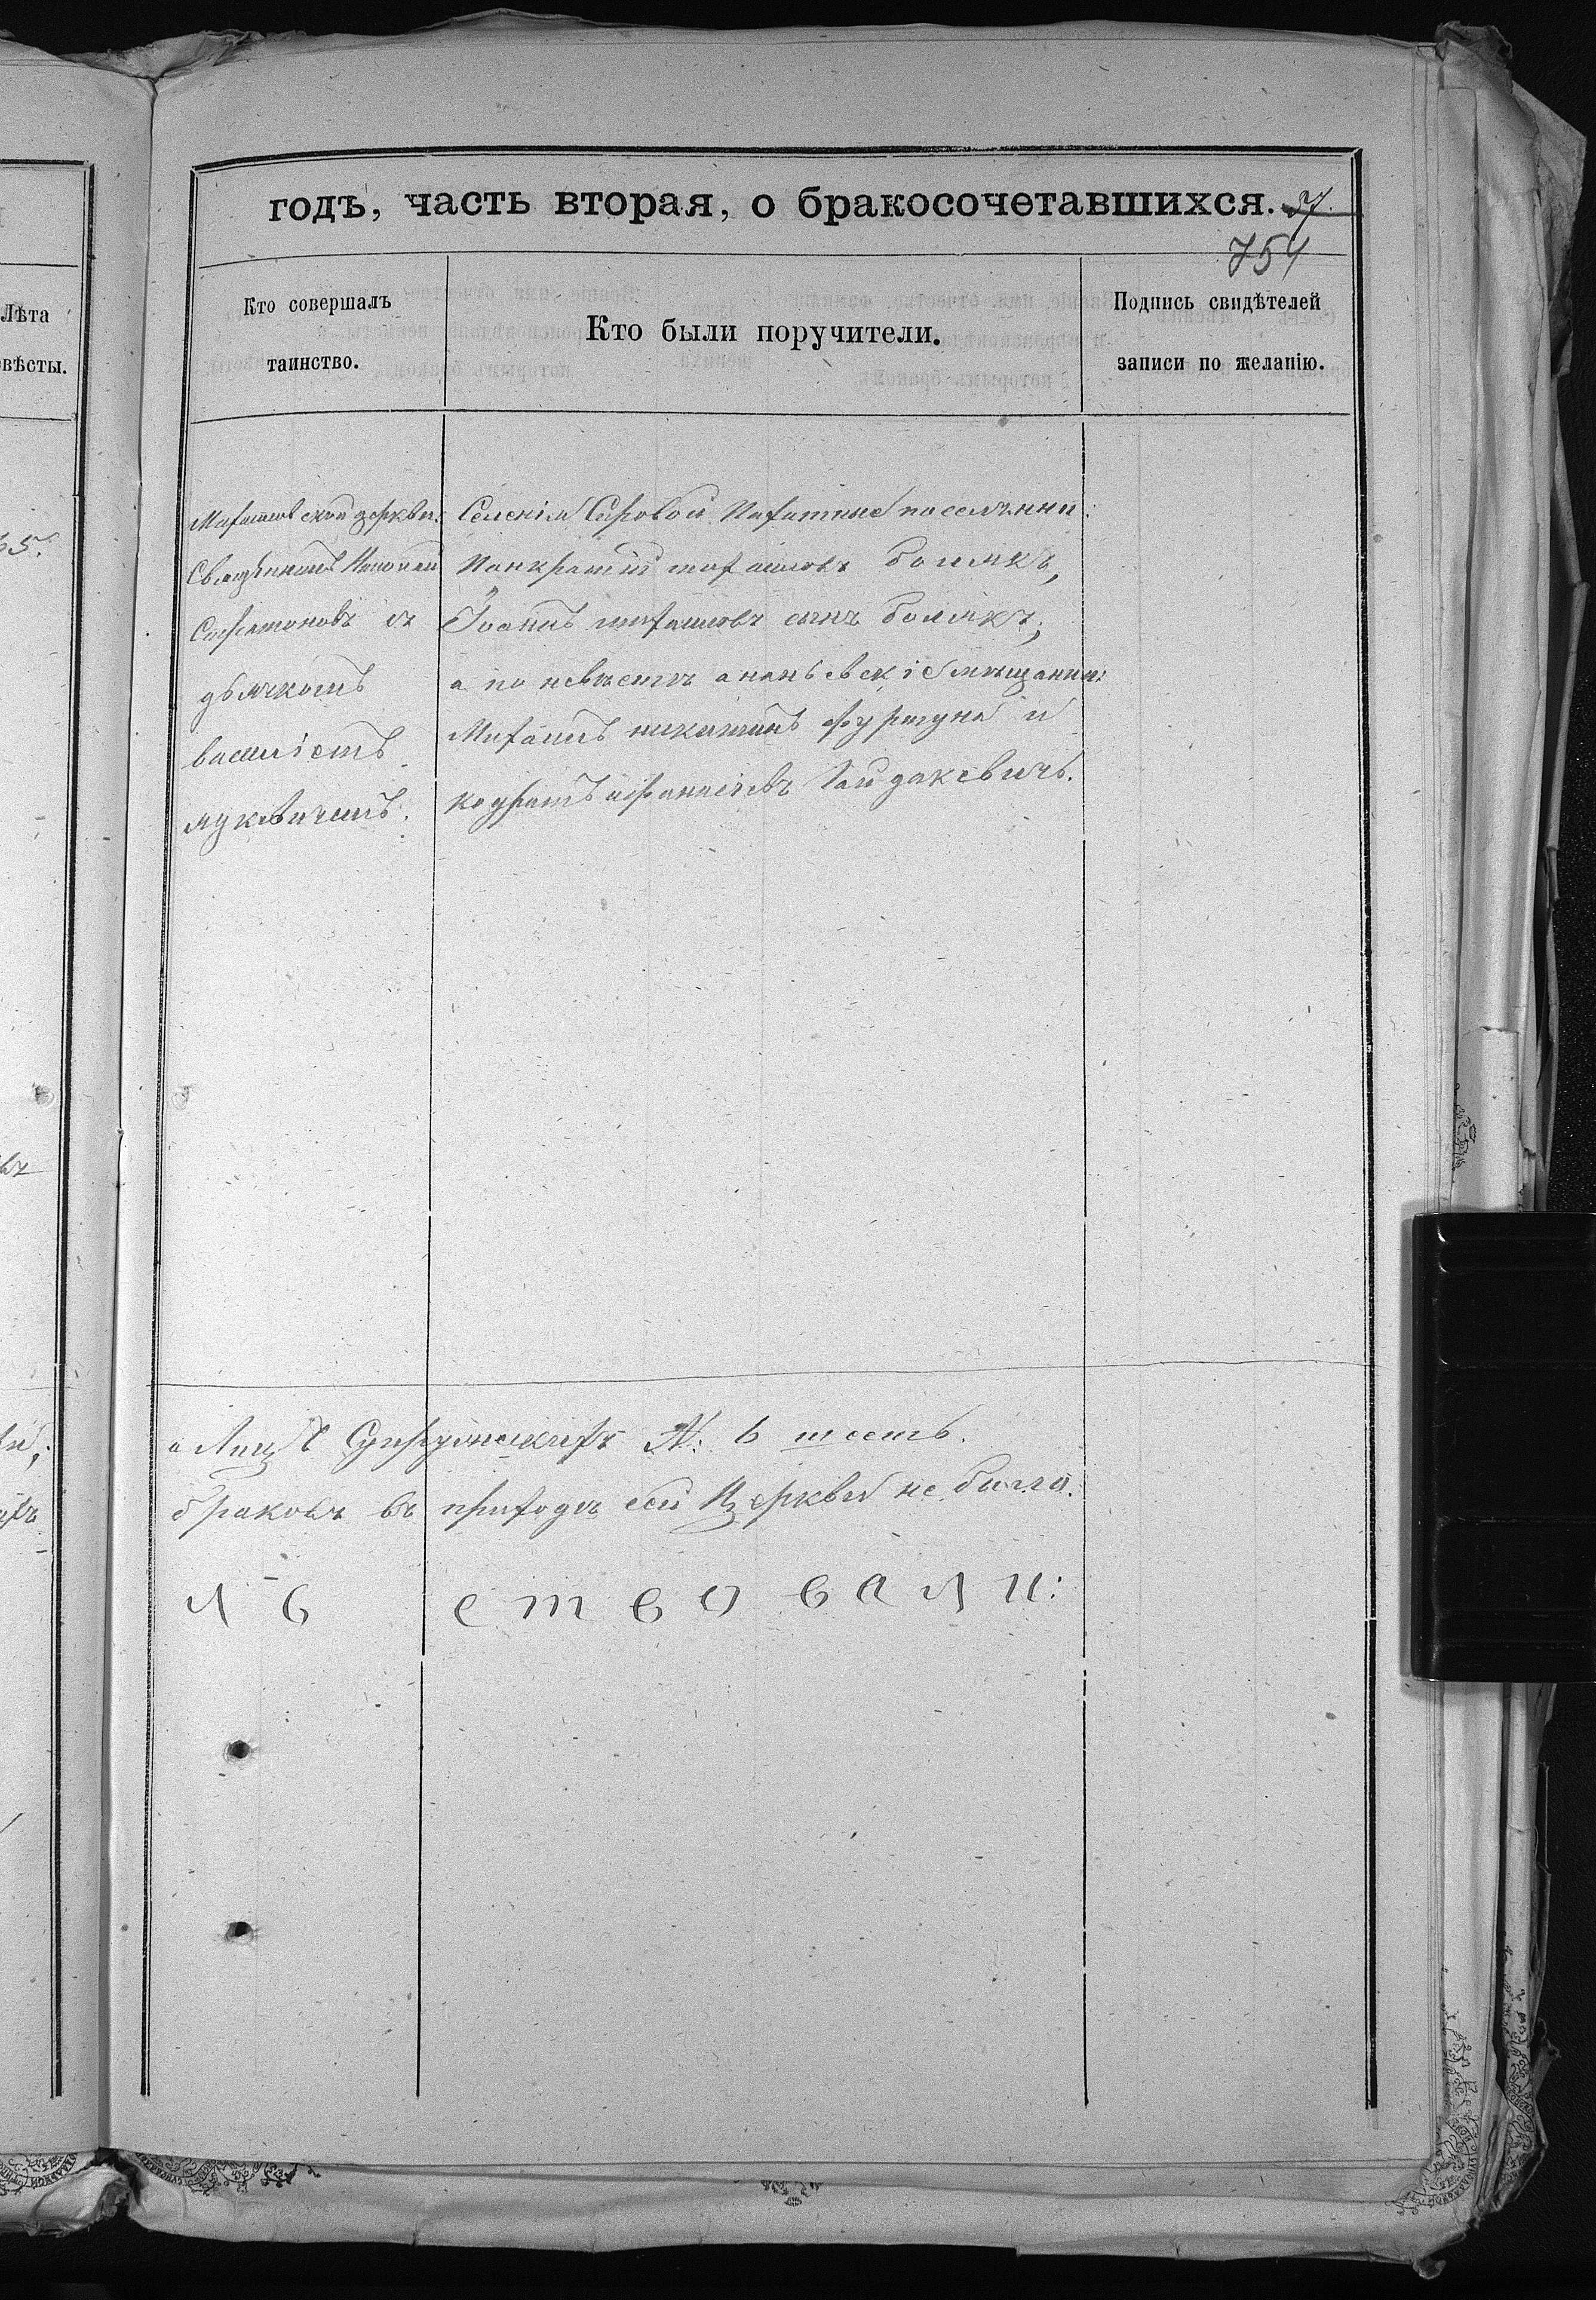 годъ, часть вторая, о бракосочетавшихся. 37.
754
Лѣта
вѣсты.
Кто совершалъ
таинство.
Кто были поручители.
Подпись свидѣтелей
записи по желанію.
35.
Михайловской церкви
Священникъ
съ
дьячкомъ
василіемъ
лукевичемъ.
Селенія Сыровой поселяни:
Панкратій михаиловъ болякъ,
Іоаннъ михаиловъ сынъ болякъ,
а по невѣстѣ ананьевскіе мѣщани:
Михаилъ никитинъ фуртуна и
кодратъ Гайдакевичъ.
а Лицъ № 6 шесть.
браковъ въ приходѣ сей Церкви не было.
л б ствовали: